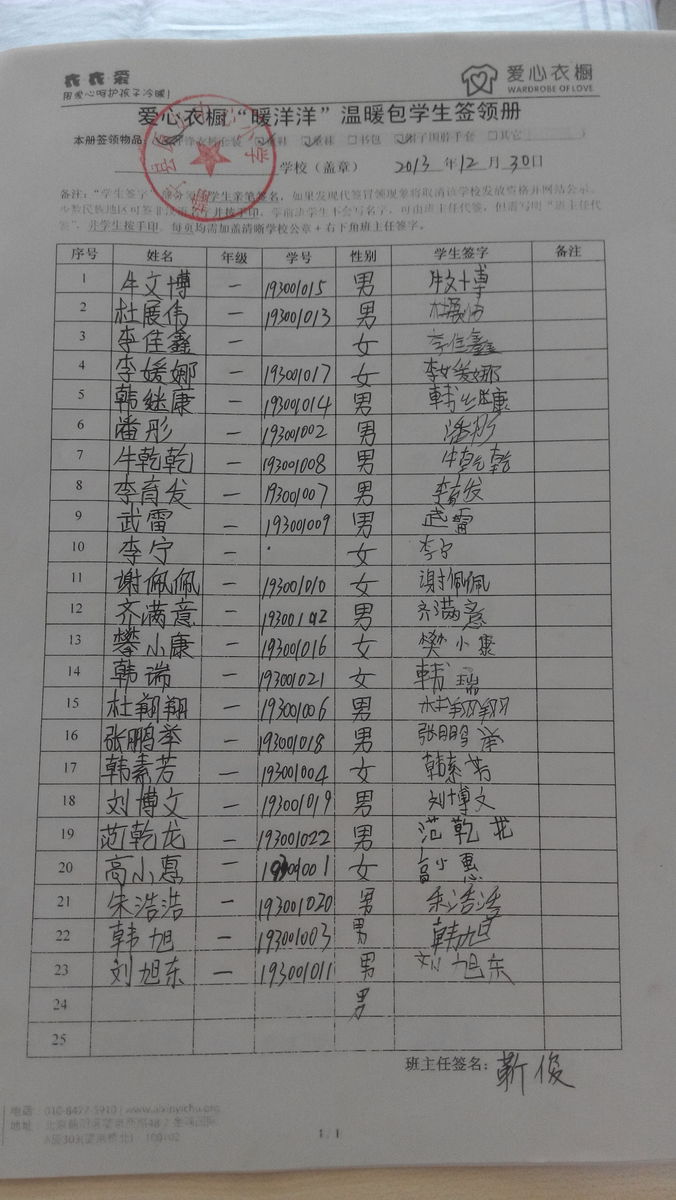 衣衣爱
用爱心呵护孩子冷暖!
爱心衣橱
WARDROBE OF LOVE
爱心衣橱“暖洋洋”温暖包学生签领册
本册签领物品: 童鞋 童袜 □书包 帽子围脖手套 □其它
学校(盖章) 2013年12月30日
备注:“学生签字”部分 学生亲笔签名,如果发现代签冒领现象将取消该学校发放资格并网站公示。
少数民族地区可签 并按手印,学前班学生不会写名字,可由班主任代签,但需写明“班主任代
签”,并学生按手印。每页均需加盖清晰学校公章+右下角班主任签字。
序号 姓名 年级 学号 性别 学生签字 备注
1 牛文博 一 193001015 男 牛文博
2 杜展伟 一 193001013 男 杜展伟
3 李佳鑫 一 女 李佳鑫
4 李媛娜 一 193001017 女 李媛娜
5 韩继康 一 193001014 男 韩继康
6 潘彤 一 193001002 男 潘彤
7 牛乾乾 一 193001008 男 牛乾乾
8 李育发 一 193001007 男 李育发
9 武雷 一 193001009 男 武雷
10 李宁 一 女 李宁
11 谢佩佩 一 193001010 女 谢佩佩
12 齐满意 一 男 齐满意
13 樊小康 一 193001016 女 樊小康
14 韩瑞 一 193001021 女 韩瑞
15 杜翔翔 一 193001006 男 杜翔翔
16 张鹏举 一 193001018 男 张鹏举
17 韩素芳 一 193001004 女 韩素芳
18 刘博文 一 193001019 男 刘博文
19 范乾龙 一 193001022 男 范乾龙
20 高小惠 一 女 高小惠
21 朱浩浩 一 193001020 男 朱浩浩
22 韩旭 一 193001003 男 韩旭
23 刘旭东 一 193001011 男 刘旭东
24 男
25
班主任签名: 靳俊
电话: 010-8477-5910 | www.aixinyichu.org
1 / 1